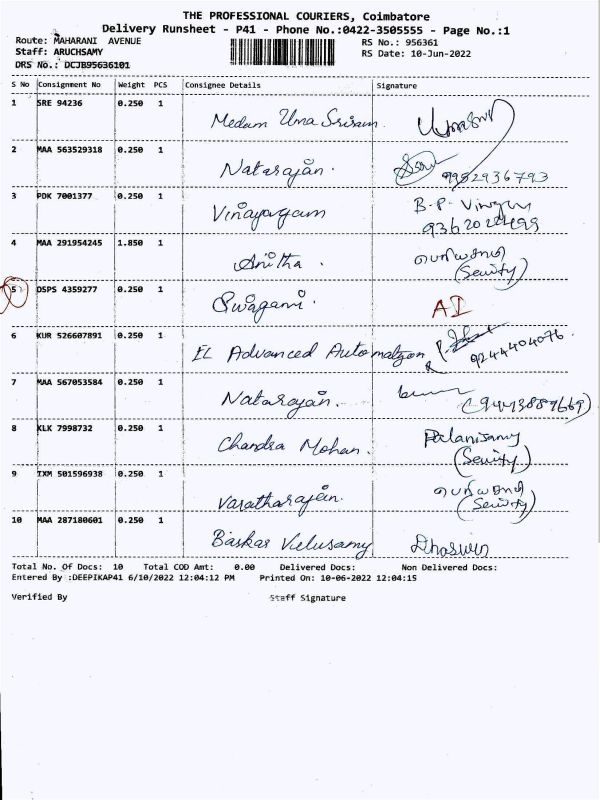 THE PROFESSIONAL COURIERS, Coimbatore
Delivery Runsheet - P41 - Phone No.:0422-3505555 - Page No.:1
Route: MAHARANI AVENUE
RS No.: 956361
Staff: ARUCHSAMY
RS Date: 10-Jun-2022
DRS No.: DCJB95636101
S No Consignment No Weight PCS Consignee Details Signature
1 SRE 94236 0.250 1
Medum Uma Sriram
2 MAA 563529318 0.250 1
Natarajan. 9952936793
3 PDK 7001377 0.250 1
Vinayagam B.P.
4 MAA 291954245 1.850 1
Anitha.
5 DSPS 4359277 0.250 1
AI
6 KUR 526607891 0.250 1
EL Advanced Automation 9244404076
7 MAA 567053584 0.250 1
Natarajan.
8 KLK 7998732 0.250 1
Chandra Mohan. Palanisamy
9 IXM 501596938 0.250 1
Varatharajan.
10 MAA 287180601 0.250 1
Baskar Velusamy
Total No. Of Docs: 10 Total COD Amt: 0.00 Delivered Docs: Non Delivered Docs:
Entered By :DEEPIKAP41 6/10/2022 12:04:12 PM Printed On: 10-06-2022 12:04:15
Verified By Staff Signature